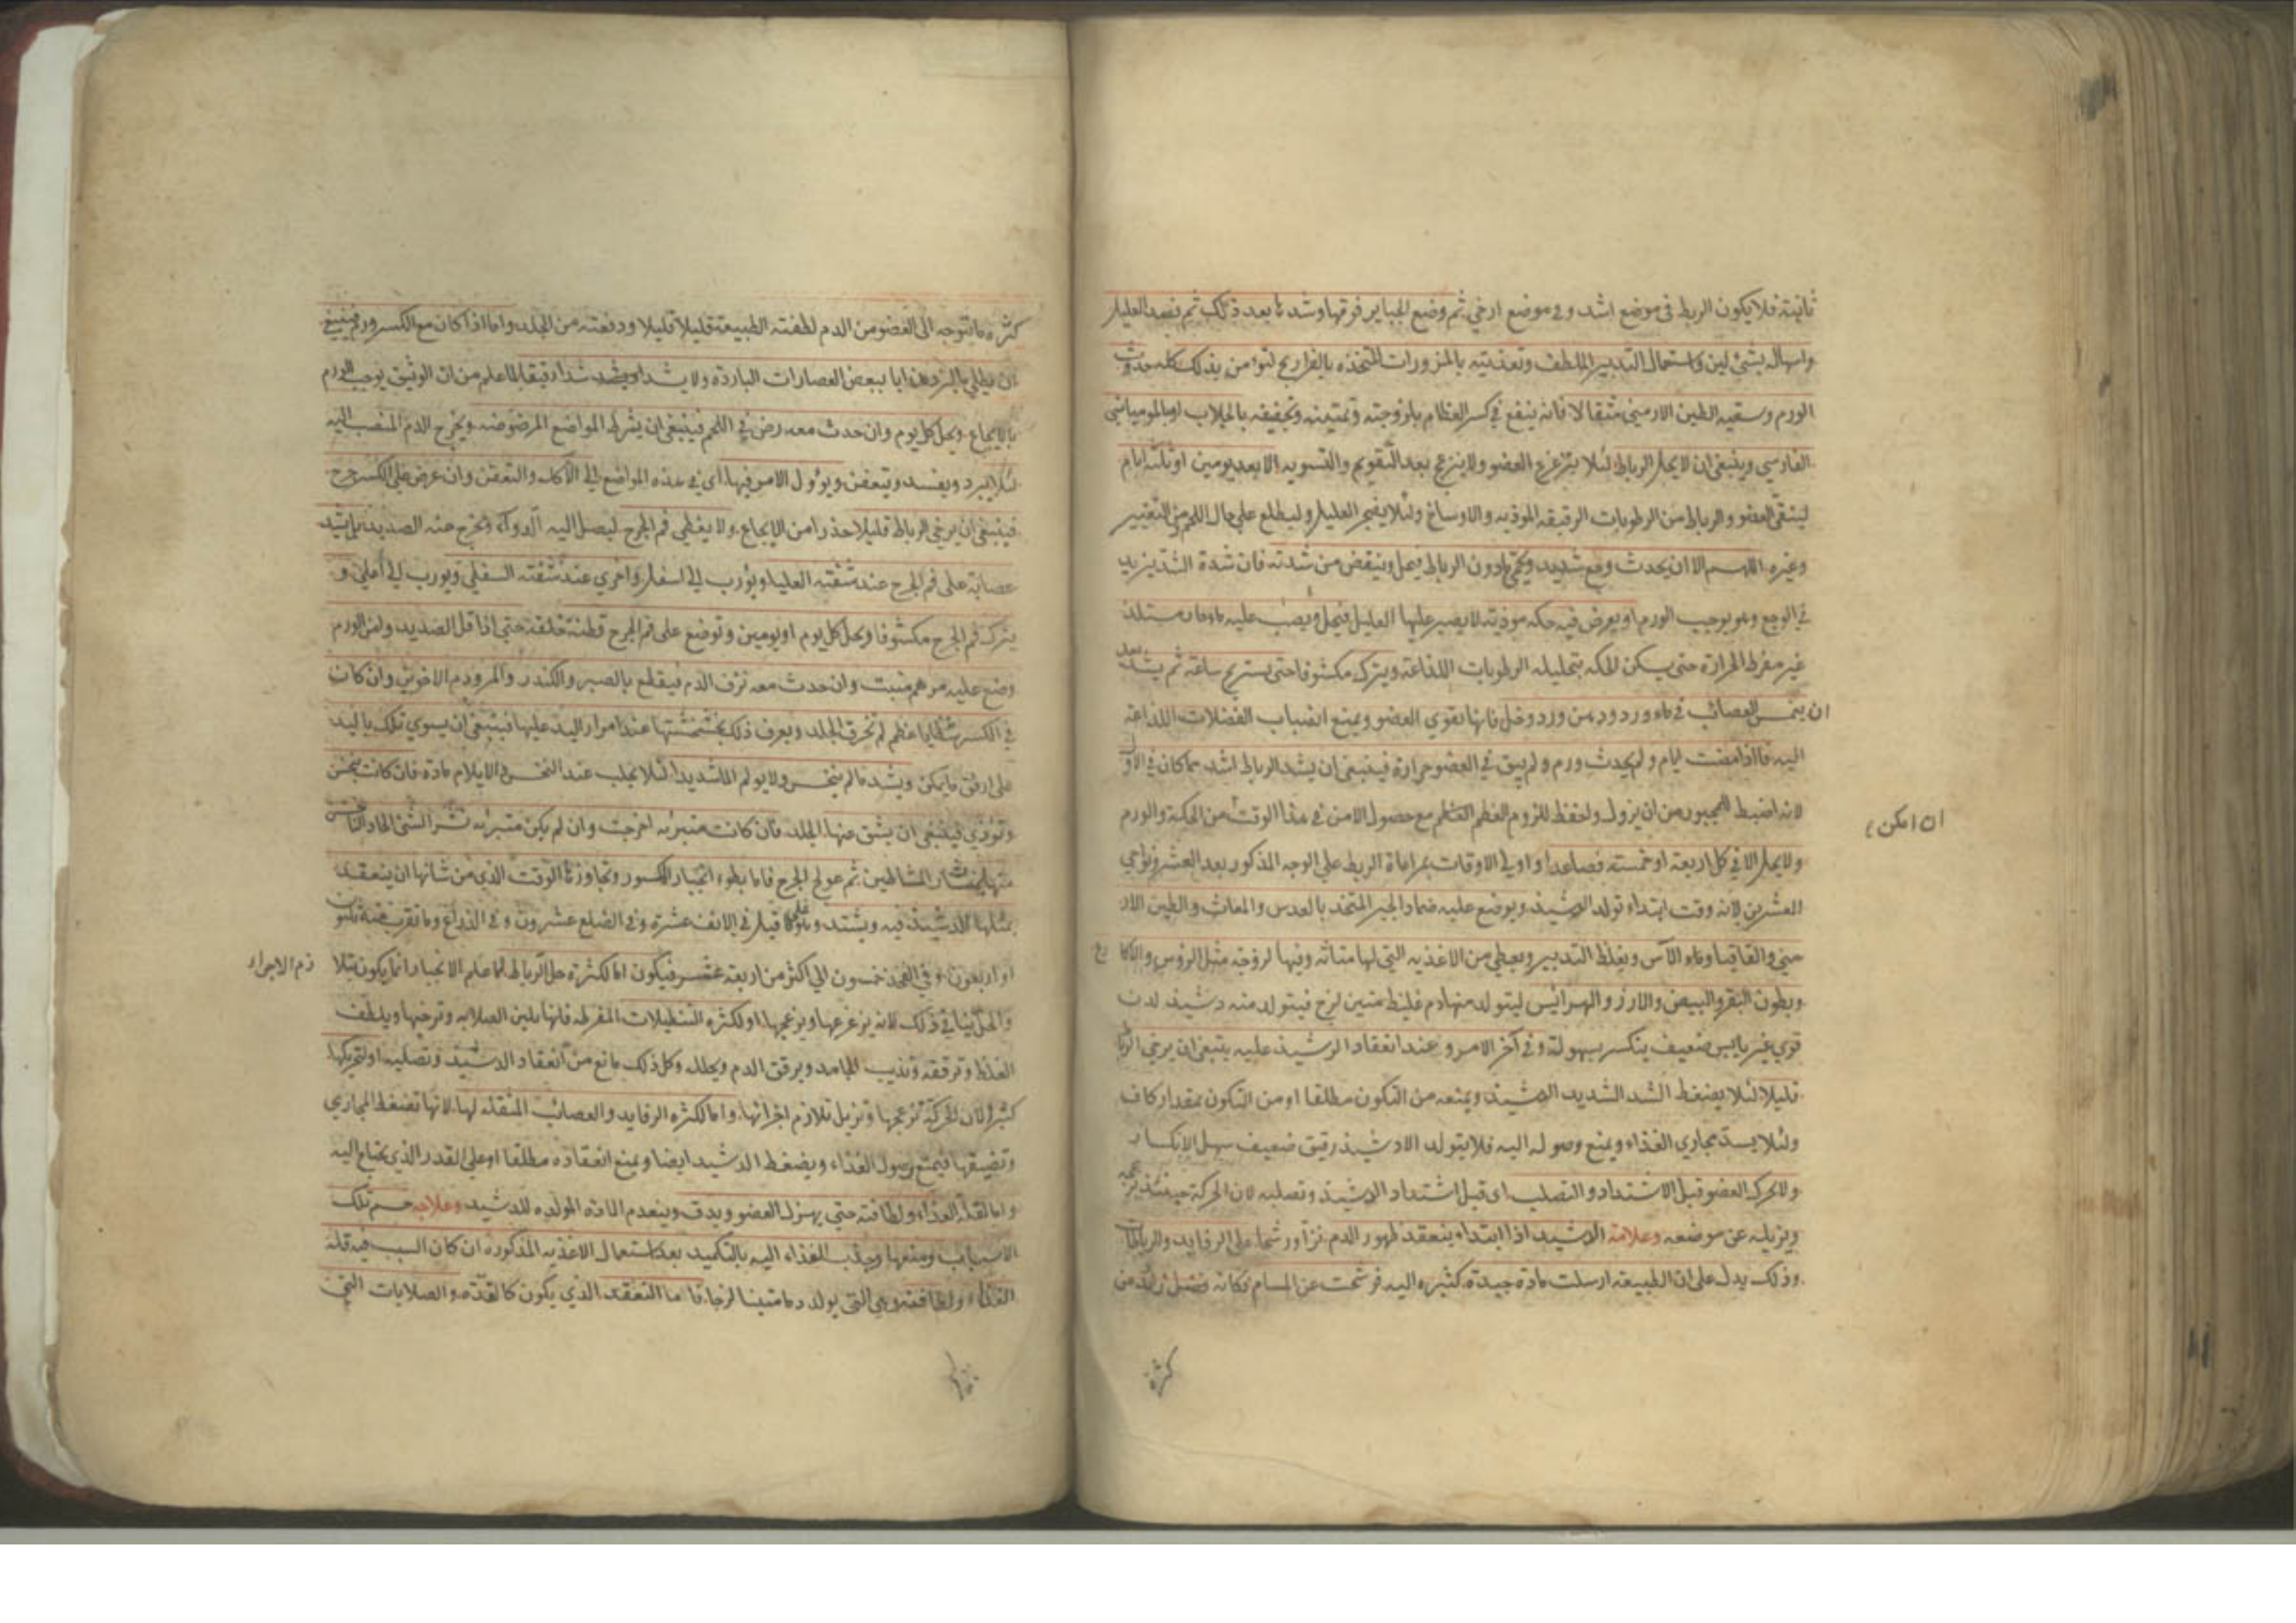 ثانية فلا يكون الربط في موضع اشد وفي موضع ارخى ثم وضع الجباير فوقها وشدها بعد ذلك ثم فصد العليل
واسهاله بشئ لين واستعمال التدبير الملطف وتغذيته بالمزورات المتخذه بالفراريج لتؤامن بذلك كله حدوث
الورم وسقيه الطين الارمني مثقالا فانه ينفع في كسر العظام بلزوجته وتمتينه وتجفيفه بالجلاب او بالموميائي
الفارسي وينبغي ان لا يحل الرباط لئلا يتزعزع العضو ولا ينزعج بعد التقويم والتسويه الا بعد يومين او ثلثة ايام
لينقى العضو والرباط من الرطوبات الرقيقه الموذيه والاوساخ ولئلا يضجر العليل وليطلع على حال اللحم من التغيير
وغيره اللهم الا ان يحدث وجع شديد وحكة دون الرباط فيحل وينقص من شدته فان شدة الشد يزيد
في الوجع وهو يوجب الورم او يعرض فيه حكه موذية لا يصبر عليها العليل فيحل ويصب عليه ماء حار مستلذ
غير مفرط الحرارة حتى يسكن الحكه بتحليله الرطوبات اللذاعة ويترك مكشوفا حتى يستريح ساعة ثم يشد بعد
ان يغمس العصائب في ماء ورد ودهن ورد وخل فانها تقوي العضو ويمنع انصباب الفضلات اللذاعة
اليه فاذا مضت ايام ولم يحدث ورم ولم يبق في العضو حرارة فينبغي ان يشد الرباط اشد مما كان في الاول
لانه اضبط للمجبور من ان يزول واحفظ للزوم العظم العظم مع حصول الامن في هذا الوقت من الحكة والورم
ان امكن
ولا يحل الا في كل اربعة او خمسة فصاعدا واولى الاوقات بمراعاة الربط على الوجه المذكور بعد العشر ونواحي
العشرين لانه وقت ابتداء تولد الدشبذ ويوضع عليه ضماد الجبر المتخذ بالعدس والمغاث والطين الار
مني والقاقيا وماء الآس ويغلظ التدبير ويعطى من الاغذيه التي لها متانه وفيها لزوجة مثل الرؤس والاكارع
وبطون البقر والبيض والارز والهرايس ليتولد منها دم غليظ متين لزج فيتولد منه دشبذ لدن
قوي غير يابس ضعيف ينكسر بسهولة وفي آخر الامر وعند انعقاد الدشبذ عليه ينبغي ان يرخى الرباط
قليلا لئلا يضغط الشد الشديد الدشبذ ويمنعه من التكون مطلقا او من التكون بمقدار كاف
ولئلا يسد مجاري الغذاء ويمنع وصوله اليه فلا يتولد الا دشبذ رقيق ضعيف سهل الانكسار
ولا يحرك العضو قبل الاشتداد والتصلب اي قبل اشتداد الدشبذ وتصلبه لان الحركة حينئذ تزعجه
ويزيله عن موضعه وعلامة الدشبذ اذا ابتداء ينعقد ظهور الدم نزاور شحا على الرفايد والرباطات
وذلك يدل على ان الطبيعة ارسلت مادة جيدة كثيره اليه فرشحت عن المسام فكانه فضل زائد من
كثرة
كثره ما يتوجه الى العضو من الدم لطفته الطبيعة قليلا قليلا ودفعته من الجلد واما اذا كان مع الكسر ورم فينبغي
ان يطلى بالمبردة اياما ببعض العصارات الباردة ولا يشد او يشد شدا رقيقا لما علم من ان الوثيق يوجب الورم
بالايجاع ويحل كل يوم وان حدث معه رض في اللحم فينبغي ان يشرط المواضع المرضوضه ويخرج الدم المنصب اليه
لئلا يبرد ويفسد ويتعفن ويؤول الامر فيها اي في هذه المواضع الى الآكله والتعفن وان عرض على الكسر جرح
فينبغي ان يرخى الرباط قليلا حذرا من الايجاع ولا يغطى فم الجرح ليصل اليه الدواء ويخرج منه الصديد بل يشد
عصابة على فم الجرح عند شفته العليا ويؤرب الى اسفل واخرى عند شفته السفلى ويورب الى اعلى و
يترك فم الجرح مكشوفا ويحل كل يوم او يومين وتوضع على فم الجرح قطنة خلقة حتى اذا قل الصديد وامن الورم
وضع عليه مرهم منبت وان حدث معه نزف الدم فيقطع بالصبر والكندر والمر ودم الاخوين وان كان
في الكسر شظايا عظم لم تخرق الجلد ويعرف ذلك بخشخشتها عند امرار اليد عليها فينبغي ان يسوى تلك باليد
على ارفق ما يمكن ويشد ما لم ينخس ولا يولم الم شديدا لئلا يجلب عند النخس والايلام مادة فان كانت تنخس
وتؤذي فينبغي ان يشق عنها الجلد فان كانت متبرئه اخرجت وان لم يكن متبرئه نشر الشئ الحاد الناخس
منها بمنشار المشاطين ثم عولج الجرح فاما بطوء انجبار الكسور وتجاوزها الوقت الذي من شانها ان ينعقد
بمثلها الدشبذ فيه ويشتد وهو على ما قيل في الانف عشره وفي الضلع عشرون وفي الذراع وما تقرب منه ثلثون
او اربعون وفي الفخذ خمسون الى اكثر من اربعة عشر فيكون اما لكثرة حل الرباط لما علم الانجبار انما يكون بتلا
زم الاجزاء
والحل ينافي ذلك لانه يزعزعها ويزعجها او لكثره التنطيلات المفرطه فانها يلين الصلابه وترخيها ويلطف
الغلظ وترققه وتذيب الجامد ويرقق الدم ويحلله وكل ذلك مانع من انعقاد الدشبذ وتصلبه او لتحريكها
كثيرا لان الحركة تزعجها وتزيل تلازم اجزائها واما لكثره الرفايد والعصائب المثقله لها لانها تضغط المجاري
وتضيقها فيمنع وصول الغذاء ويضغط الدشبذ ايضا ويمنع انعقاده مطلقا او على القدر الذي يحتاج اليه
واما لقلة الغذاء ولطافته حتى يهزل العضو ويدق وينعدم المادة المولده للدشبذ وعلاجه حسم تلك
الاسباب ومنعها وجلب الغذاء اليه بالتكميد بعد استعمال الاغذيه المذكوره ان كان السبب فيه قلة
الغذاء ولطافته وهي التي يولد دما متينا لزجا فاما التعقد الذي يكون كالغدد والصلابات التي